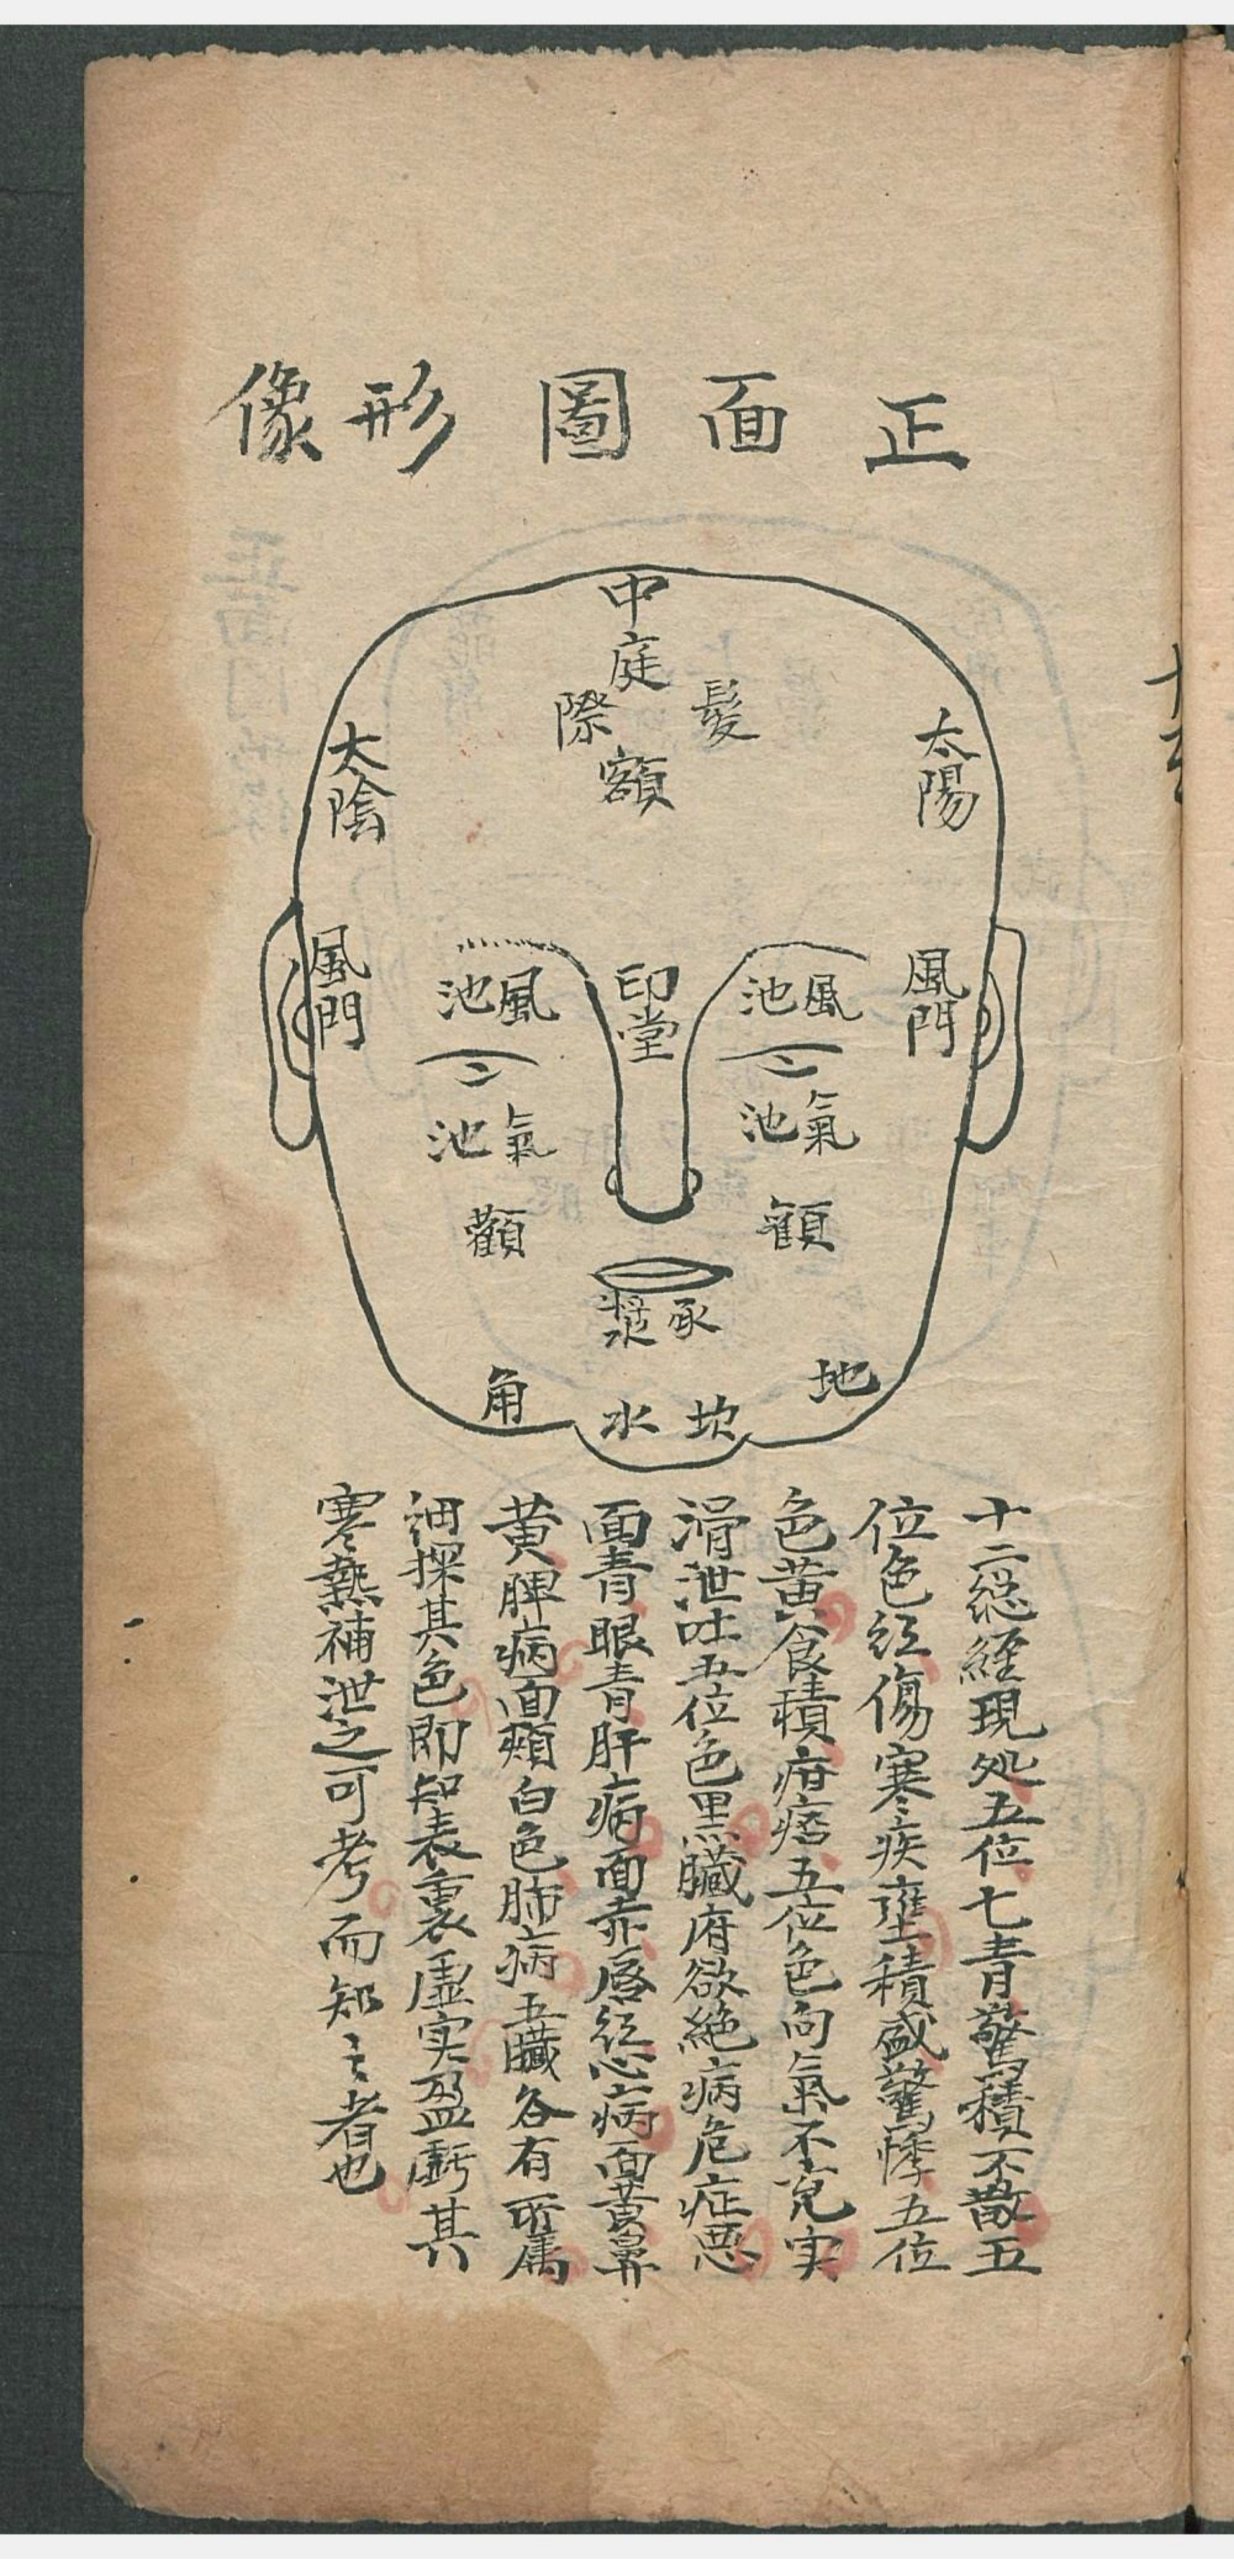 正面圖形像
中庭
髮際
額
太陽
太陰
風門
風門
風池
風池
印堂
氣池
氣池
顴
顴
承漿
地角
坎水
十二総經現処五位七青驚積不散五
位色红傷寒疾壅積盛驚悸五位
色黄食積疳痞五位色向氣不克实
滑泄吐五位色黑臓府欲絶病危症恶
面青眼青肝病面赤唇红心病面黄鼻
黄脾病面頬白色肺病五臓各有所属
细探其色即知表裏虛实盈虧其
寒热補泄之可考而知之者也